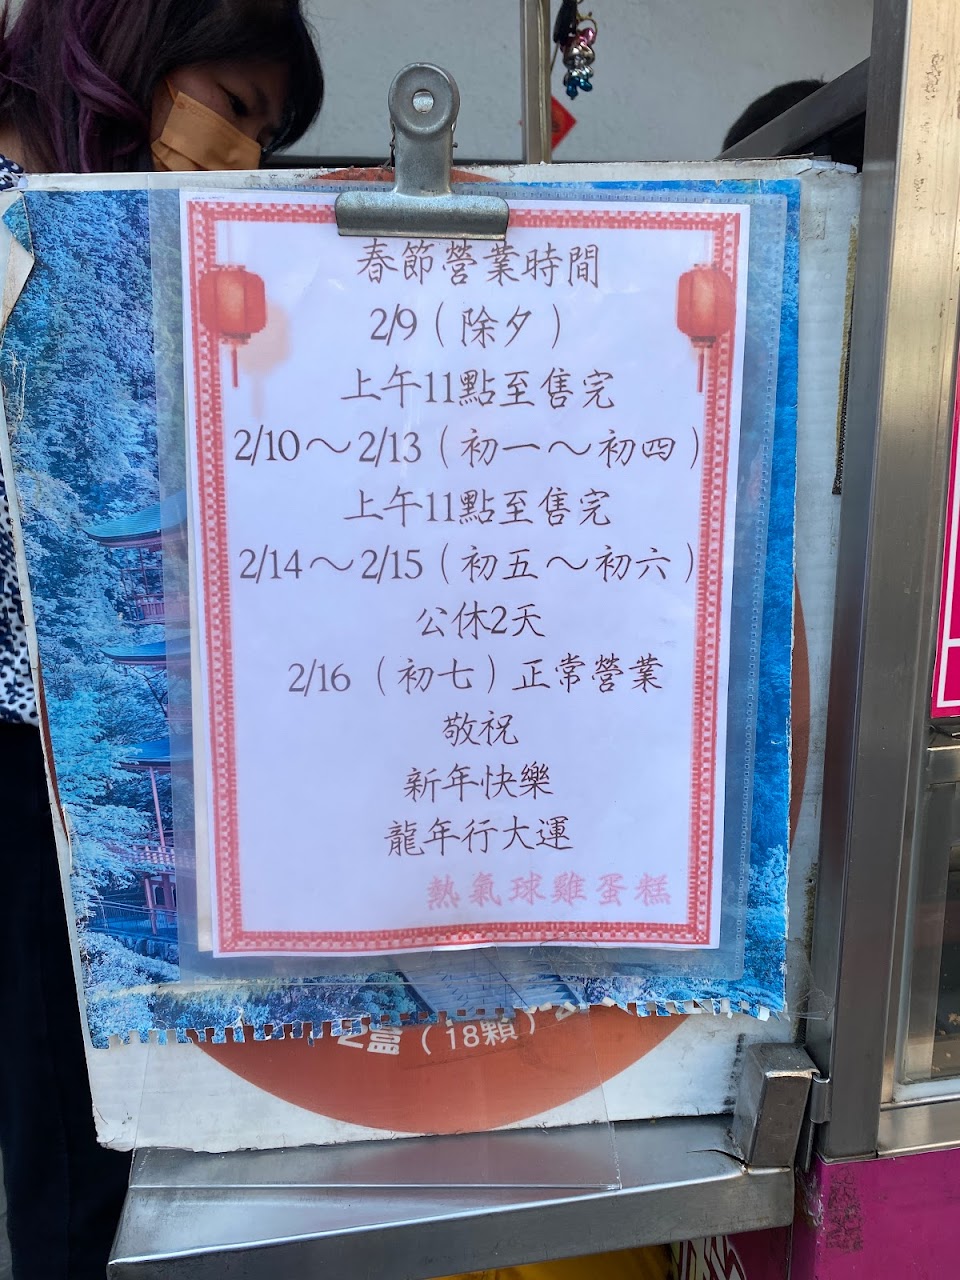 春節營業時間
2/9（除夕）
上午11點至售完
2/10～2/13（初一～初四）
上午11點至售完
2/14～2/15（初五～初六）
公休2天
2/16（初七）正常營業
敬祝
新年快樂
龍年行大運
熱氣球雞蛋糕
盒（18顆）